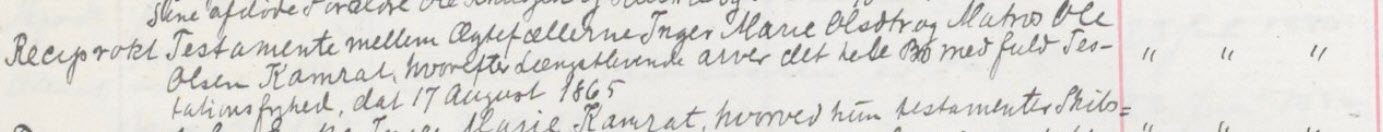 Sine afdøde Forældre Ole
Reciprokt Testamente mellem Ægtefællerne Inger Marie Olsdtr og Matros Ole " " "
Olsen Kamrat, hvorefter Længstlevende arver det hele Bo med fuld Tes-
tationsfrihed, dat 17 August 1865
Inger Marie Kamrat, hvorved hun testamenter Skibs=